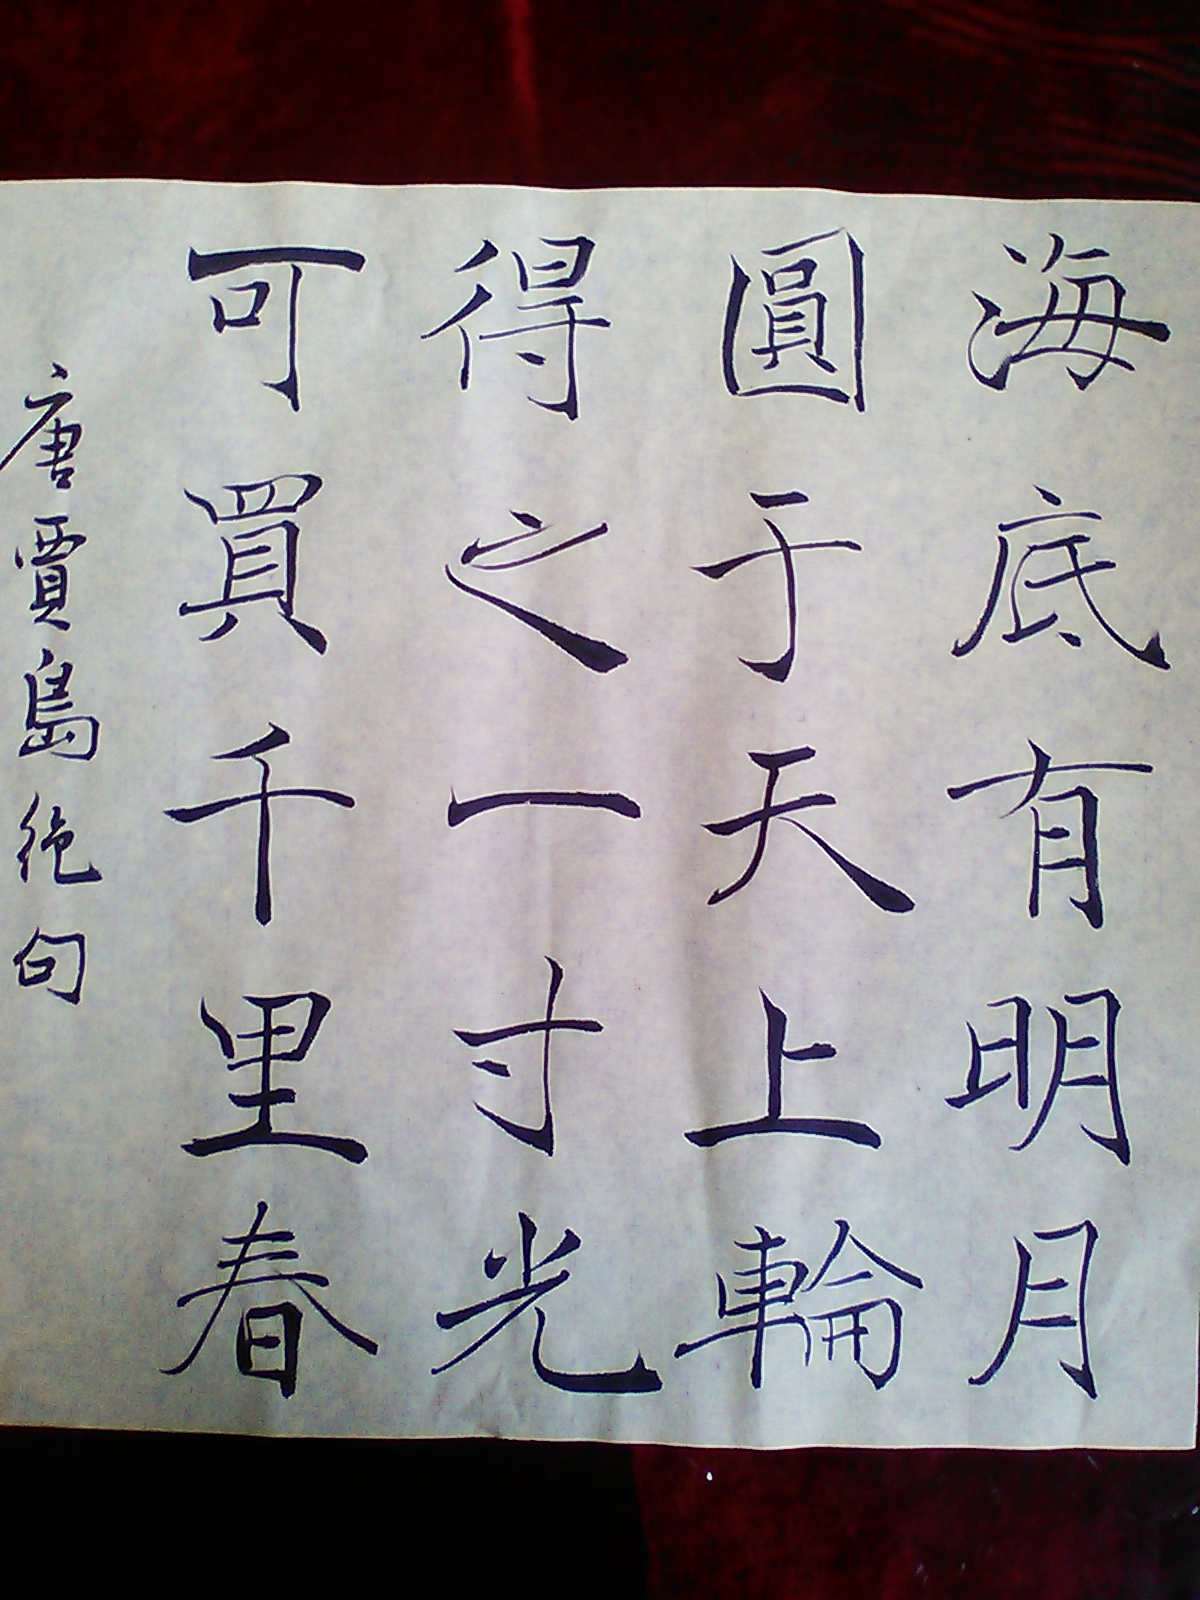 海底有明月
圓于天上輪
得之一寸光
可買千里春
唐賈島絶句